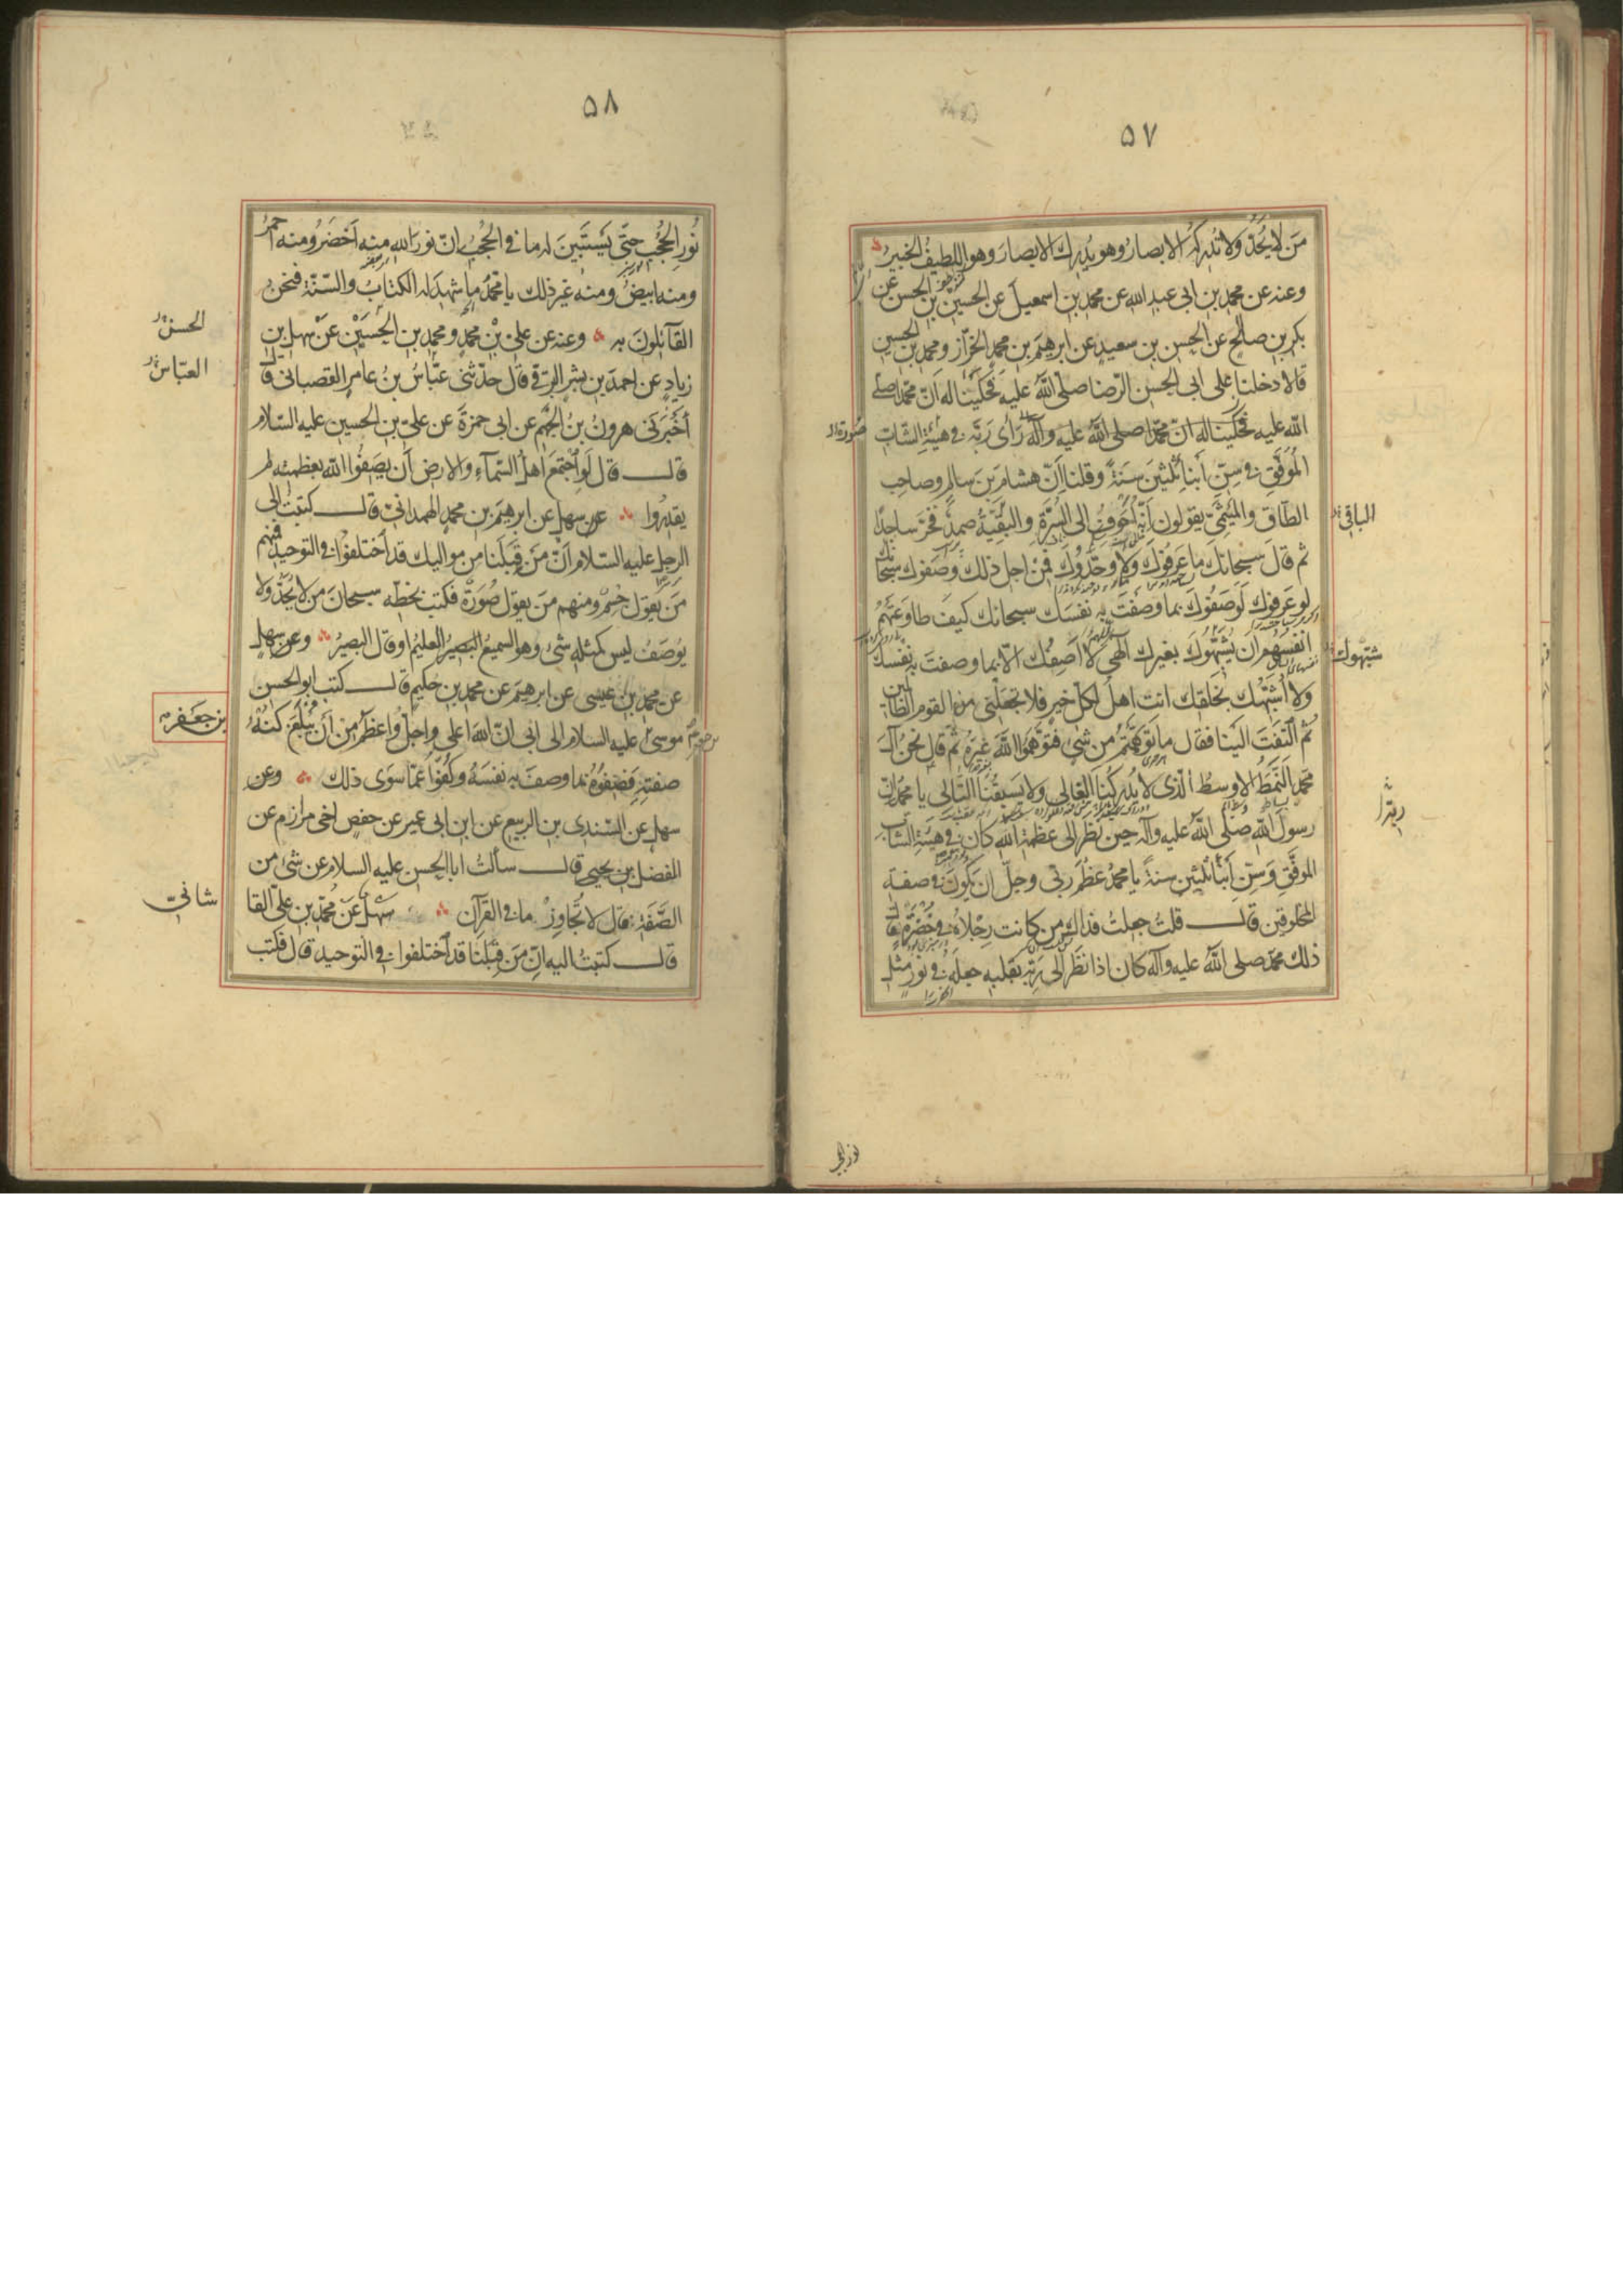 ۵۷
مَن لا يُحَدّ ولا تُدركه الابصارُ وهو يُدرك الابصارَ وهو اللطيفُ الخبيرُ
وعنه عن محمد بن ابى عبد الله عن محمد بن اسمعيل عن الحسين بن الحسن عن
بكر بن صالح عن الحسن بن سعيد عن ابرهيم بن محمد الخرّاز ومحمد بن الحسين
قالا دخلنا على ابى الحسن الرضا صلّى الله عليه فحكينا له انّ محمّدا صلى
الله عليه فحكينا له انّ محمّدا صلى الله عليه وآله رَأى رَبّه فى هيئة الشّابّ
صورة
المُوَفّق فى سِنّ أبناء ثلثين سَنَةً وقلنا انّ هشام بن سالم وصاحب
الطّاق والميثمىّ يقولون انّه اَجوفُ الى السُرّة والبقيّة صمدٌ فخرّ ساجدًا
الباقى
ثم قال سبحانك ما عَرفوك ولا وحّدوك فمن اجل ذلك وصفوك سبحانك
لو عَرفوك لَوصَفُوك بما وصفتَ به نفسَك سبحانك كيف طاوعتهم
انفسُهُم ان يُشبّهوك بغيرك الٰهى لا اَصِفُك الّا بما وصفتَ به نفسك
شبّهوك
ولا اُشبّهك بخلقك انت اهلُ لكلّ خير فلا تجعلنى من القوم الظالمين
ثم التفتَ الينا فقال ما توهّمتم من شىء فتوهّموا الله غيره ثم قال نحن آل
محمّد النَمَطُ الاوسطُ الّذى لا يُدركُنا الغالى ولا يَسبقُنا التّالى يا محمّد انّ
رسول الله صلّى الله عليه وآله حين نظر الى عظمة الله كان فى هيئة الشّابّ
الموفّق وسنّ أبناء ثلثين سنةً يا محمدُ عظُمَ ربّى وجلّ ان يكونَ فى صفة
المخلوقين قال قلتُ جعلتُ فداك من كانت رِجْلاهُ فى خُضرَةٍ قال
ذلك محمّد صلى الله عليه وآله كان اذا نظَر الى رَبّه بقلبه جعله فى نورٍ مثلِ
نور الحجب
۵۸
نُورِ الحُجُب حتّى يَستَبينَ له ما فى الحُجُب انّ نور الله منه اَخضَرُ ومنه احمرُ
ومنه ابيضُ ومنه غير ذلك يا محمّدُ ما شهد له الكتابُ والسّنّة فنحنُ
القآئلونَ به وعنه عن على بْنِ محمّدٍ ومحمد بن الحُسَيْن عَنْ سهل بن
الحسن
زيادٍ عن احمد بن بشر البرقى قال حدّثنى عبّاسُ بنُ عامرٍ القصبانى قال
العبّاس
أخبَرَنى هرونُ بنُ الجهم عن ابى حمزةَ عن علىّ بن الحسين عليه السّلام
قال قال لَو اجتمعَ اهلُ السّمآء والارض أن يصفُوا الله بعظمته لم
يقدِرُوا عن سهل عن ابرهيم بن محمد الهمدانىّ قال كتبتُ الى
الرجل عليه السّلام انّ مَن قِبَلَنا من مواليك قد اختلفُوا فى التوحيد فمنهم
مَن يقول جسمٌ ومنهم مَن يقول صُورةٌ فكتب بخطّه سبحانَ من لا يُحَدّ ولا
يُوصَفُ ليس كمثله شىء وهو السميعُ البَصيرُ العليمُ او قال البصيرُ وعن سهلٍ
عن محمد بن عيسى عن ابرهيم عن محمد بن حكيم قال كتب ابو الحسن
بن جعفر
موسى عليه السلام الى ابى انّ الله اعلى واجلّ واعظَم من أن يُبلَغَ كُنهُ
صفتِه فصِفُوهُ بما وصفَ به نفسَهُ وكُفّوا عمّا سوَى ذلك وعن
سهلٍ عن السّندى بن الربيع عن ابن ابى عمير عن حفصٍ اخى مرازم عن
المفضل بن يحيى قال سألتُ ابا الحسن عليه السلام عن شىء من
الصّفة فقال لا تُجاوِز ما فى القرآن سهلٌ عن مُحمّد بن علىّ القا
شانىّ
قال كتبتُ اليه انّ مَن قِبَلنا قد اختلفوا فى التوحيد قال فكتب